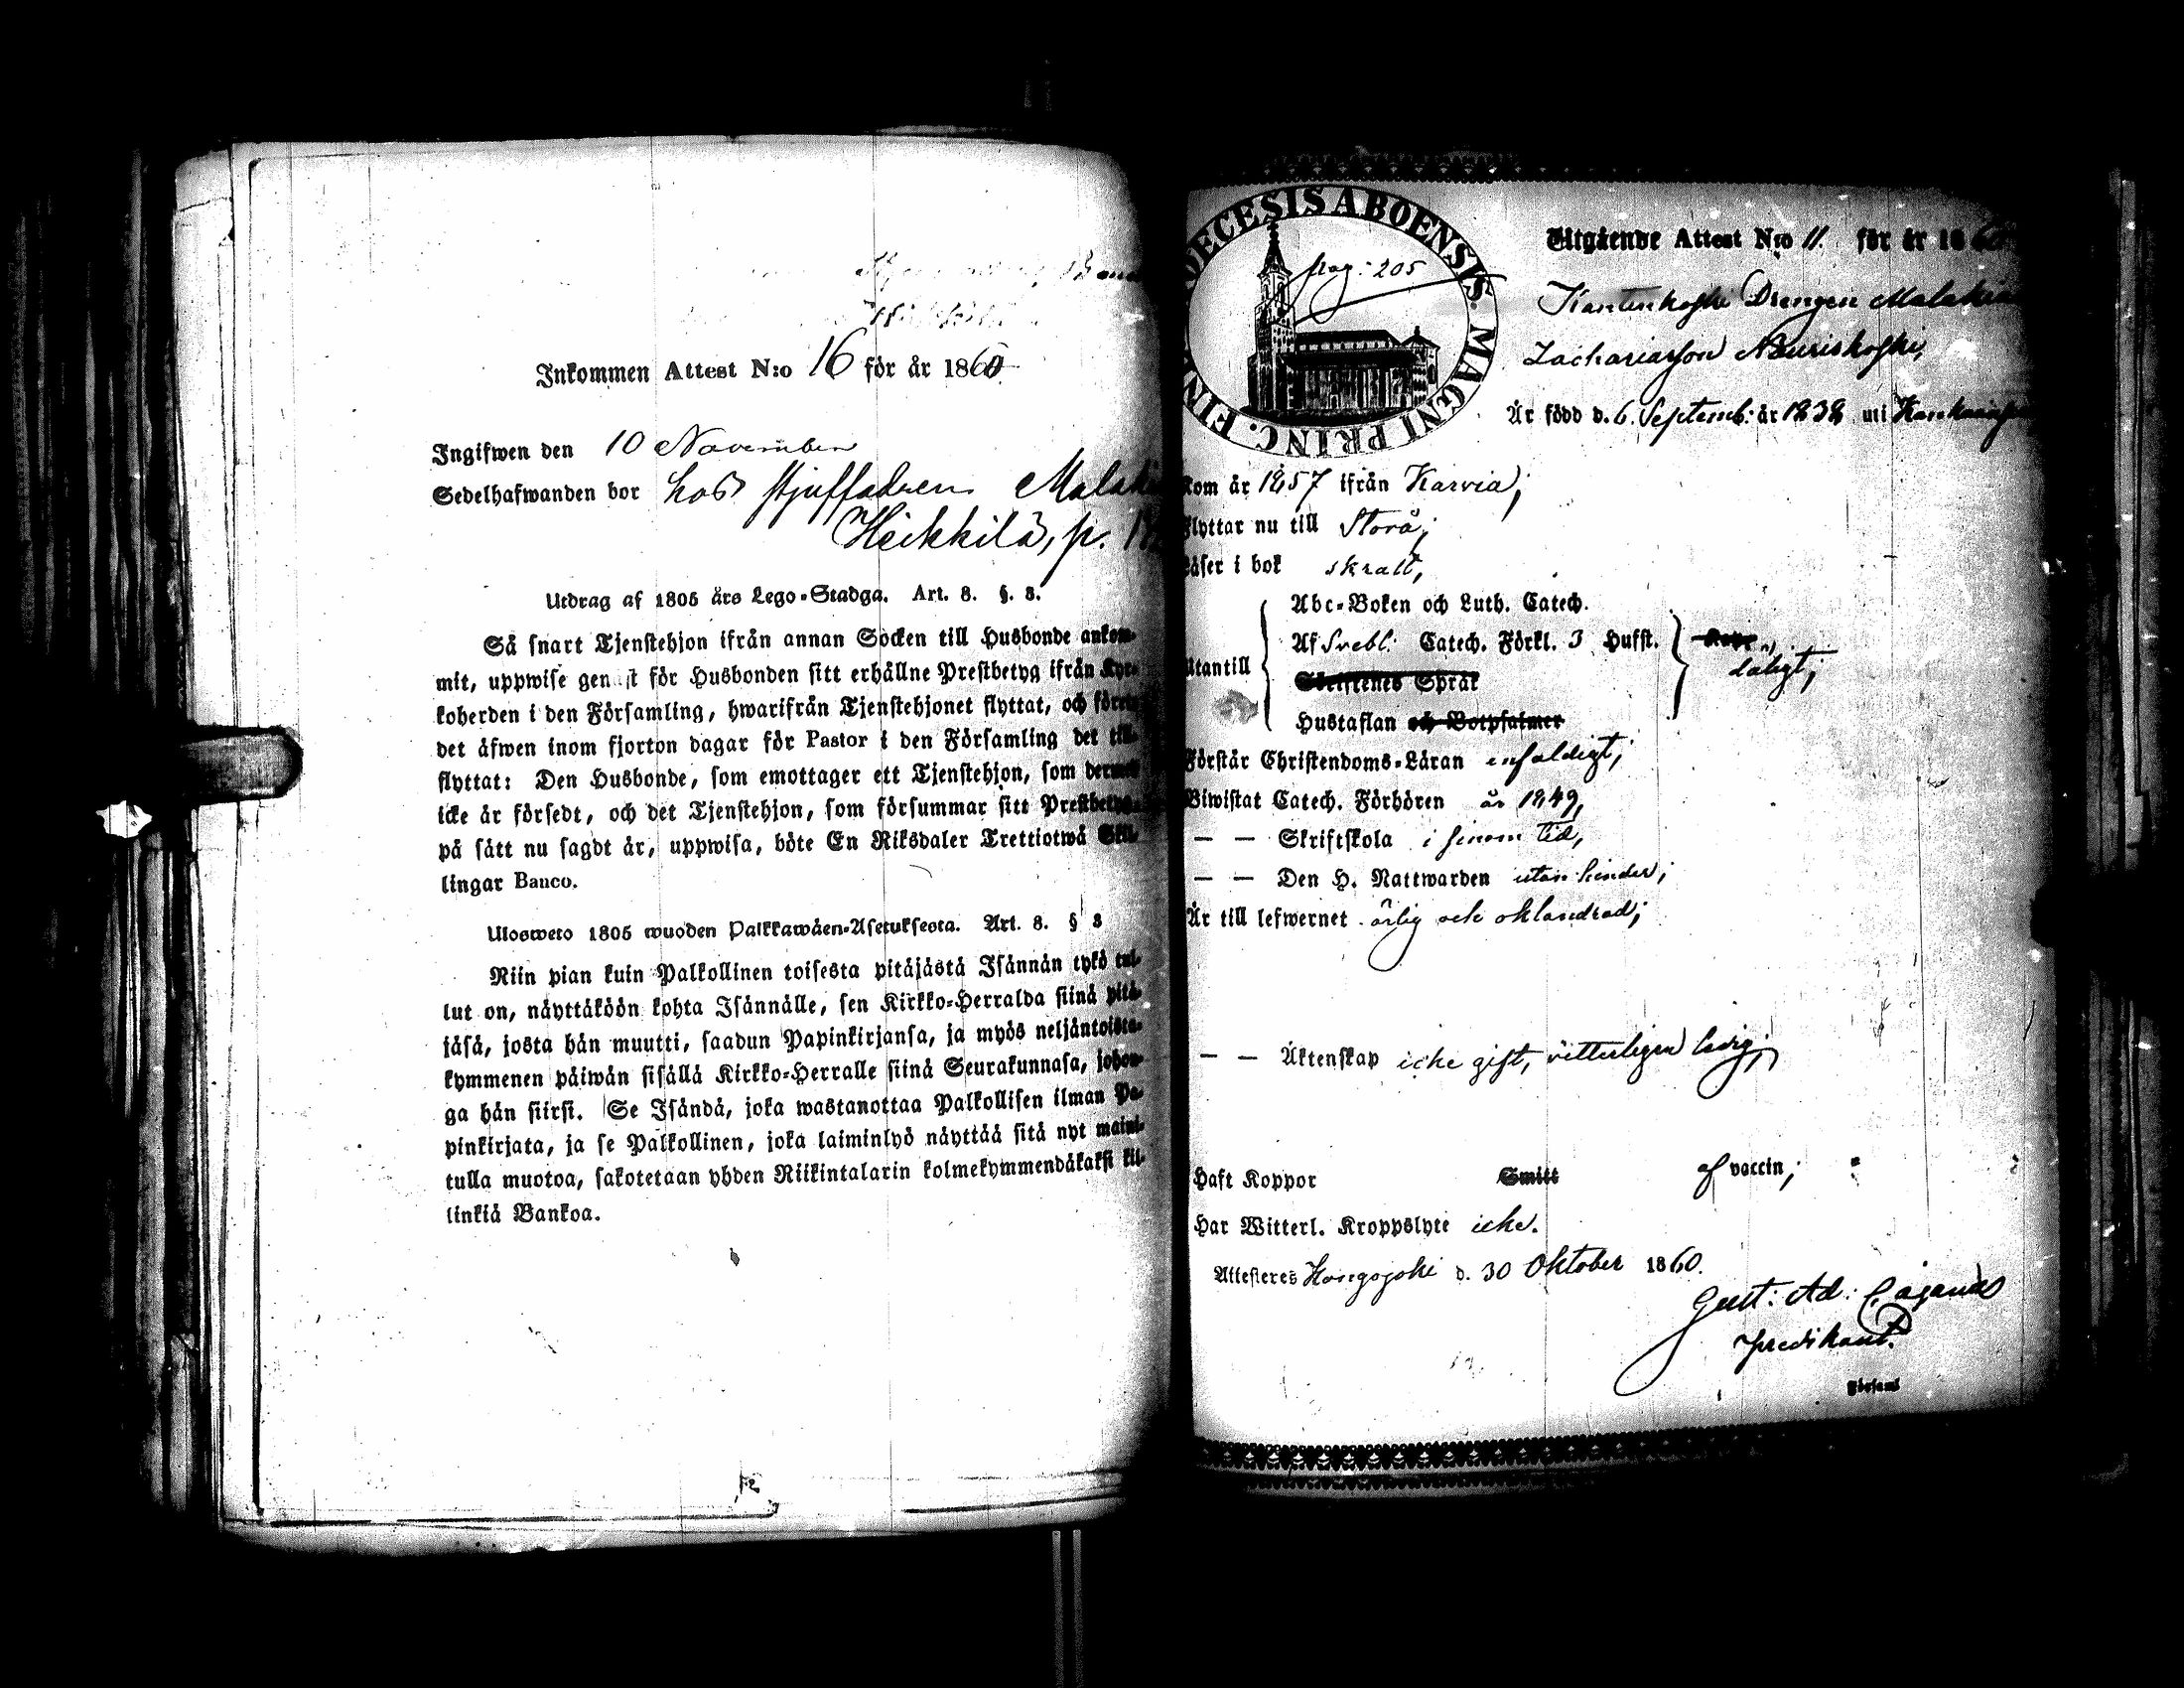 Inkommen Attest N:o 16 för år 1860
Ingifwen den 10 November
Sedelhafwanden bor hos stjuffadren
Heikkilä, p.
Utdrag af 1805 års Lego-Stadga. Art. 8. §. 8.
Så snart Tjenstehjon ifrån annan Socken till Husbonde ankom-
mit, uppwise genast för Husbonden sitt erhållne Prestbetyg ifrån Kyr-
koherden i den Församling, hwarifrån Tjenstehjonet flyttat, och förete
det äfwen inom fjorton dagar för Pastor i den Församling det till-
flyttat: Den Husbonde, som emottager ett Tjenstehjon, som dermed
icke är försedt, och det Tjenstehjon, som försummar sitt Prestbetyg,
på sätt nu sagdt är, uppwisa, böte En Riksdaler Trettiotwå Skil-
lingar Banco.
Uloswéto 1805 wuoden Palkkawäen-Asetuksesta. Art. 8. § 8
Niin pian kuin Palkollinen toisesta pitäjästä Isännän tykö tul-
lut on, näyttäköön kohta Isännälle, sen Kirkko-Herralda siinä pitä-
jäsä, josta hän muutti, saadun Papinkirjansa, ja myös neljäntoista-
kymmenen päiwän sisällä Kirkko-Herralle siinä Seurakunnasa, johon-
ga hän siirsi. Se Isändä, joka wastanottaa Palkollisen ilman Pa-
pinkirjata, ja se Palkollinen, joka laiminlyö näyttää sitä nyt maini-
tulla muotoa, sakotetaan yhden Riikintalarin kolmekymmendäkaksi kil-
linkiä Bankoa.
DECESIS ABOENSIS. MAGNI PRINC. FIN
pag: 205
Utgående Attest N:o 11. för år 1860
Drengen Malakias
Zachariasson Nauriskoski,
Är född d. 6. Septemb: år 1838 uti
Kom år 1857 ifrån Karvia;
Flyttar nu till Storå;
Läser i bok skralt,
Utantill
Abc-Boken och Luth. Catech.
Af Svebl: Catech. Förkl. 3 Hufst.
Skriftenes Språk
Hustaflan och Botpsalmer
dåligt;
Förstår Christendoms-Läran enfaldigt;
Biwistat Catech. Förhören år 1849,
— — Skriftskola i sinom tid,
— — Den H. Nattwarden utan hinder;
Är till lefwernet ärlig och oklandrad;
— — Äktenskap icke gift, vitterligen ledig;
Haft Koppor Smitt af vaccin;
Har Witterl. Kroppslyte icke.
Attesteres Kongojoki d. 30 Oktober 1860.
Gust: Ad:
predikant.
Församl